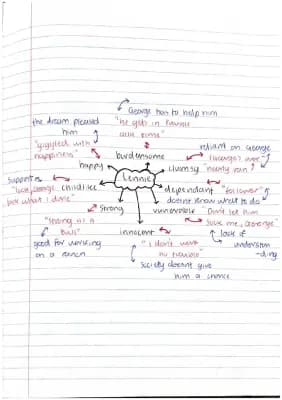 George has to help him
"he gets in trouble
all time"
the dream pleased
him
"giggled with
happiness"
burdensome
reliant on George
happy
clumsy
Lennie
supports
childlike
dependant "follower"
doesn't know what to do
"look, George,
look what I done"
strong
vunerable "Don't let him
"strong as a
bull"
innocent
lack of
understan
-ding
good for working
on a ranch
"I don't want
no trouble"
society doesn't give
him a chance